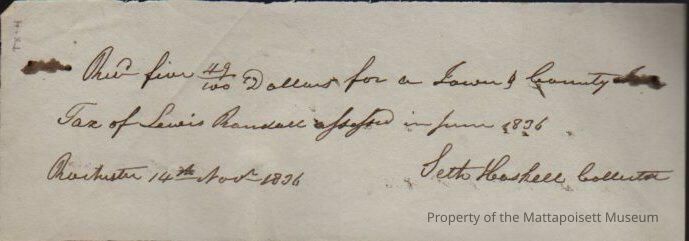 Recd five 49/100 Dollars for a Town & County
Tax of Lewis Randall assessed in June 1836
Rochester 14th Novr 1836
Seth Haskell Collector
Property of the Mattapoisett Museum